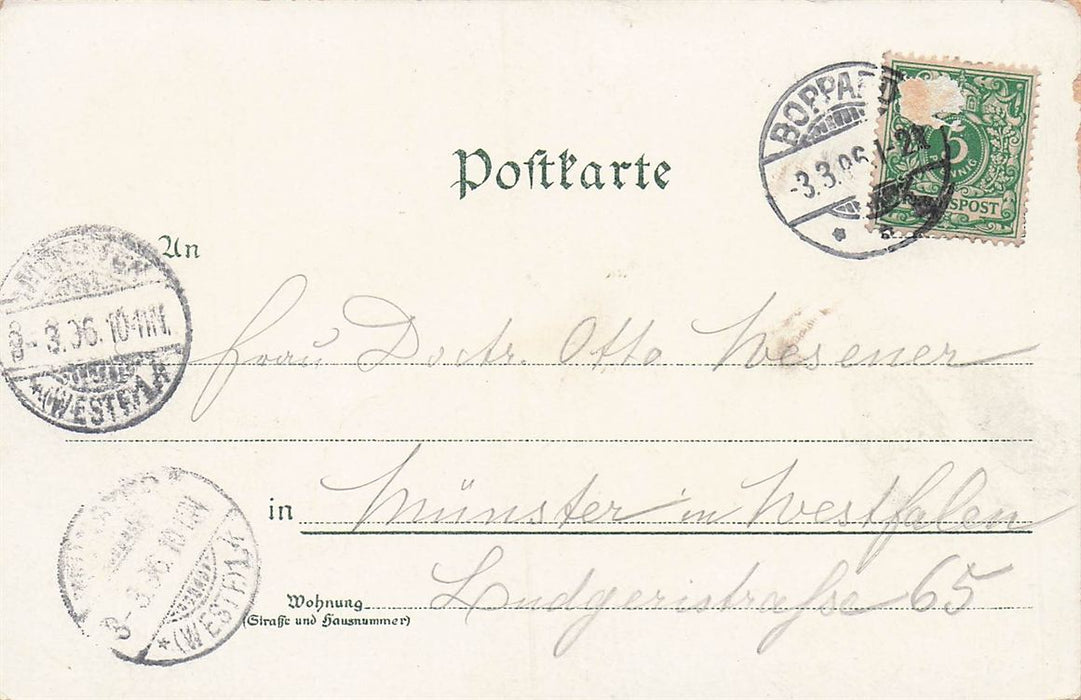 Postkarte
BOPPARD
-3.3.96.1-2N
5
PFENNIG
REICHSPOST
An
Frau Doctr. Otto Wesener
8-3.3.96.10-11N.
*(WESTF.)
in Münster in Westfalen
8-3.3.96.10-11N
*(WESTF.)
Wohnung Ludgeristraße 65
(Straße und Hausnummer)